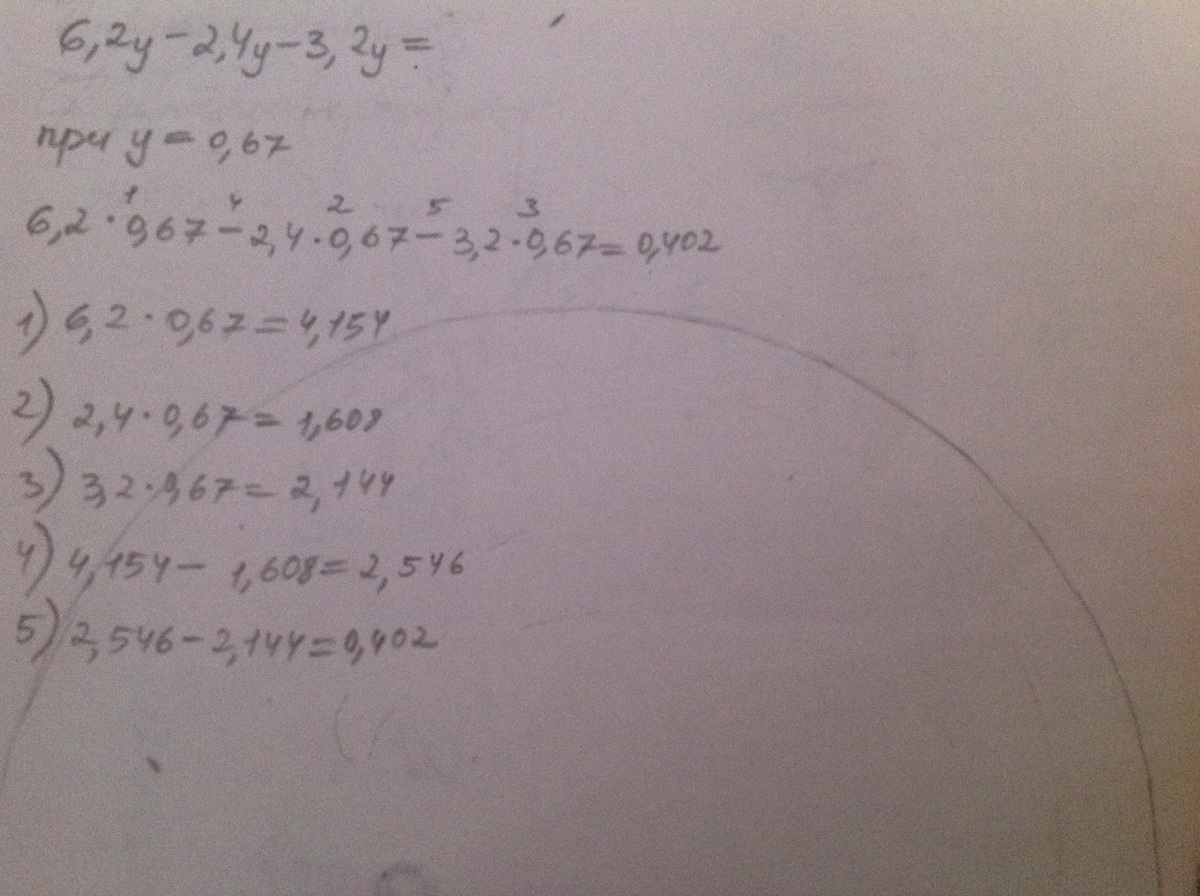 6,2y-2,4y-3,2y=
при y=0,67
1 4 2 5 3
6,2·0,67-2,4·0,67-3,2·0,67=0,402
1) 6,2·0,67=4,154
2) 2,4·0,67=1,608
3) 3,2·0,67=2,144
4) 4,154-1,608=2,546
5) 2,546-2,144=0,402